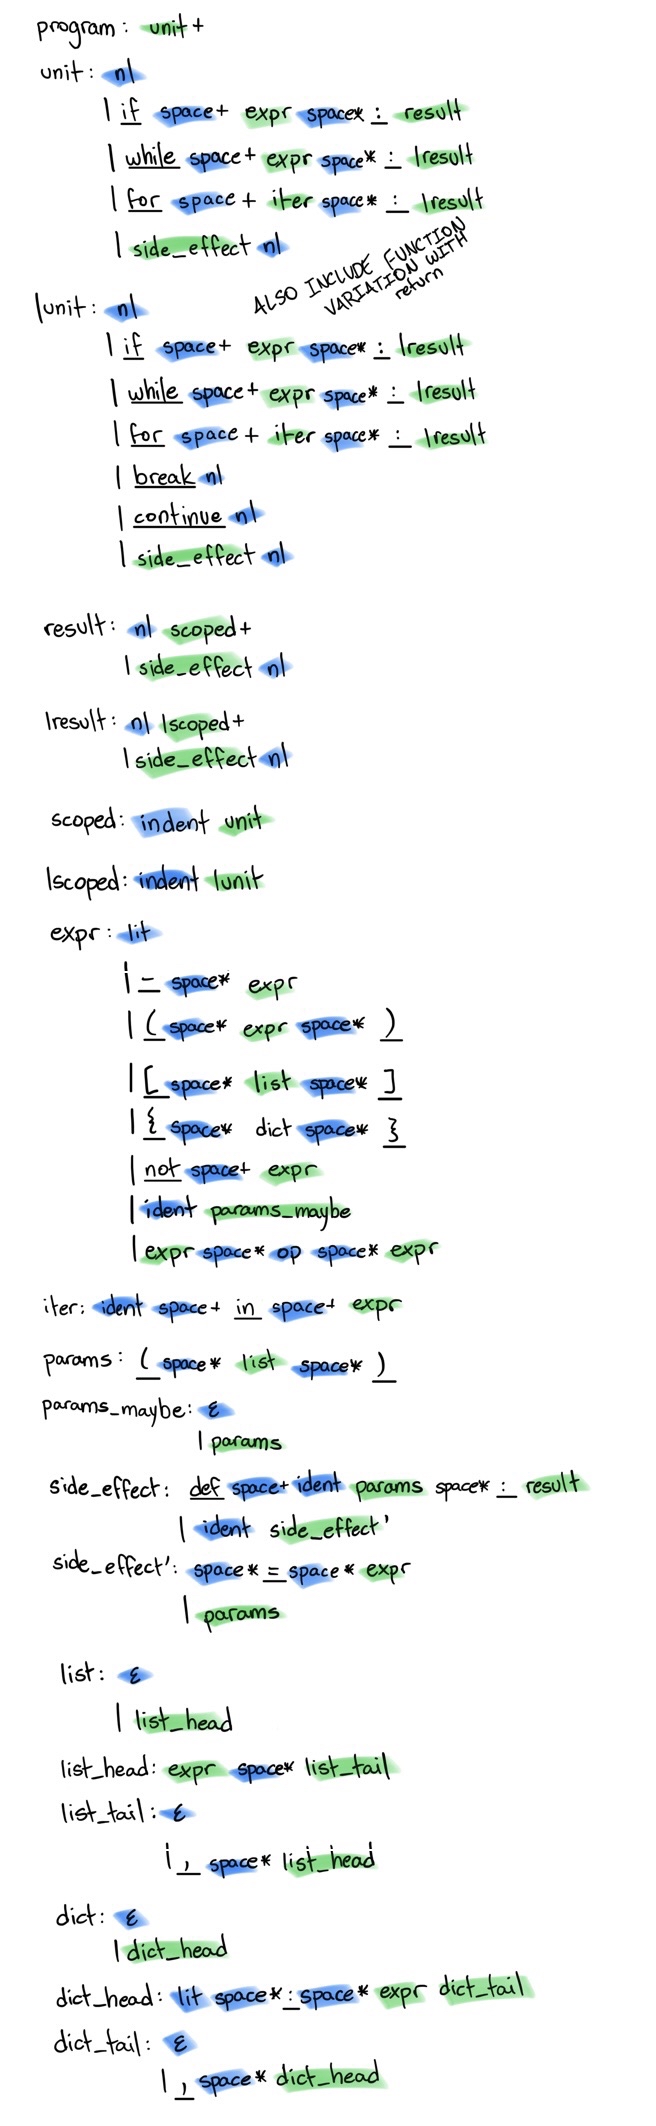 program: unit+
unit: nl
| if space+ expr space* : result
| while space+ expr space* : lresult
| for space+ iter space* : lresult
| side_effect nl
ALSO INCLUDE FUNCTION
VARIATION WITH
return
lunit: nl
| if space+ expr space* : lresult
| while space+ expr space* : lresult
| for space+ iter space* : lresult
| break nl
| continue nl
| side_effect nl
result: nl scoped+
| side_effect nl
lresult: nl lscoped+
| side_effect nl
scoped: indent unit
lscoped: indent lunit
expr: lit
| - space* expr
| ( space* expr space* )
| [ space* list space* ]
| { space* dict space* }
| not space+ expr
| ident params_maybe
| expr space* op space* expr
iter: ident space+ in space+ expr
params: ( space* list space* )
params_maybe: ε
| params
side_effect: def space+ ident params space* : result
| ident side_effect'
side_effect': space* = space* expr
| params
list: ε
| list_head
list_head: expr space* list_tail
list_tail: ε
| , space* list_head
dict: ε
| dict_head
dict_head: lit space* : space* expr dict_tail
dict_tail: ε
| , space* dict_head